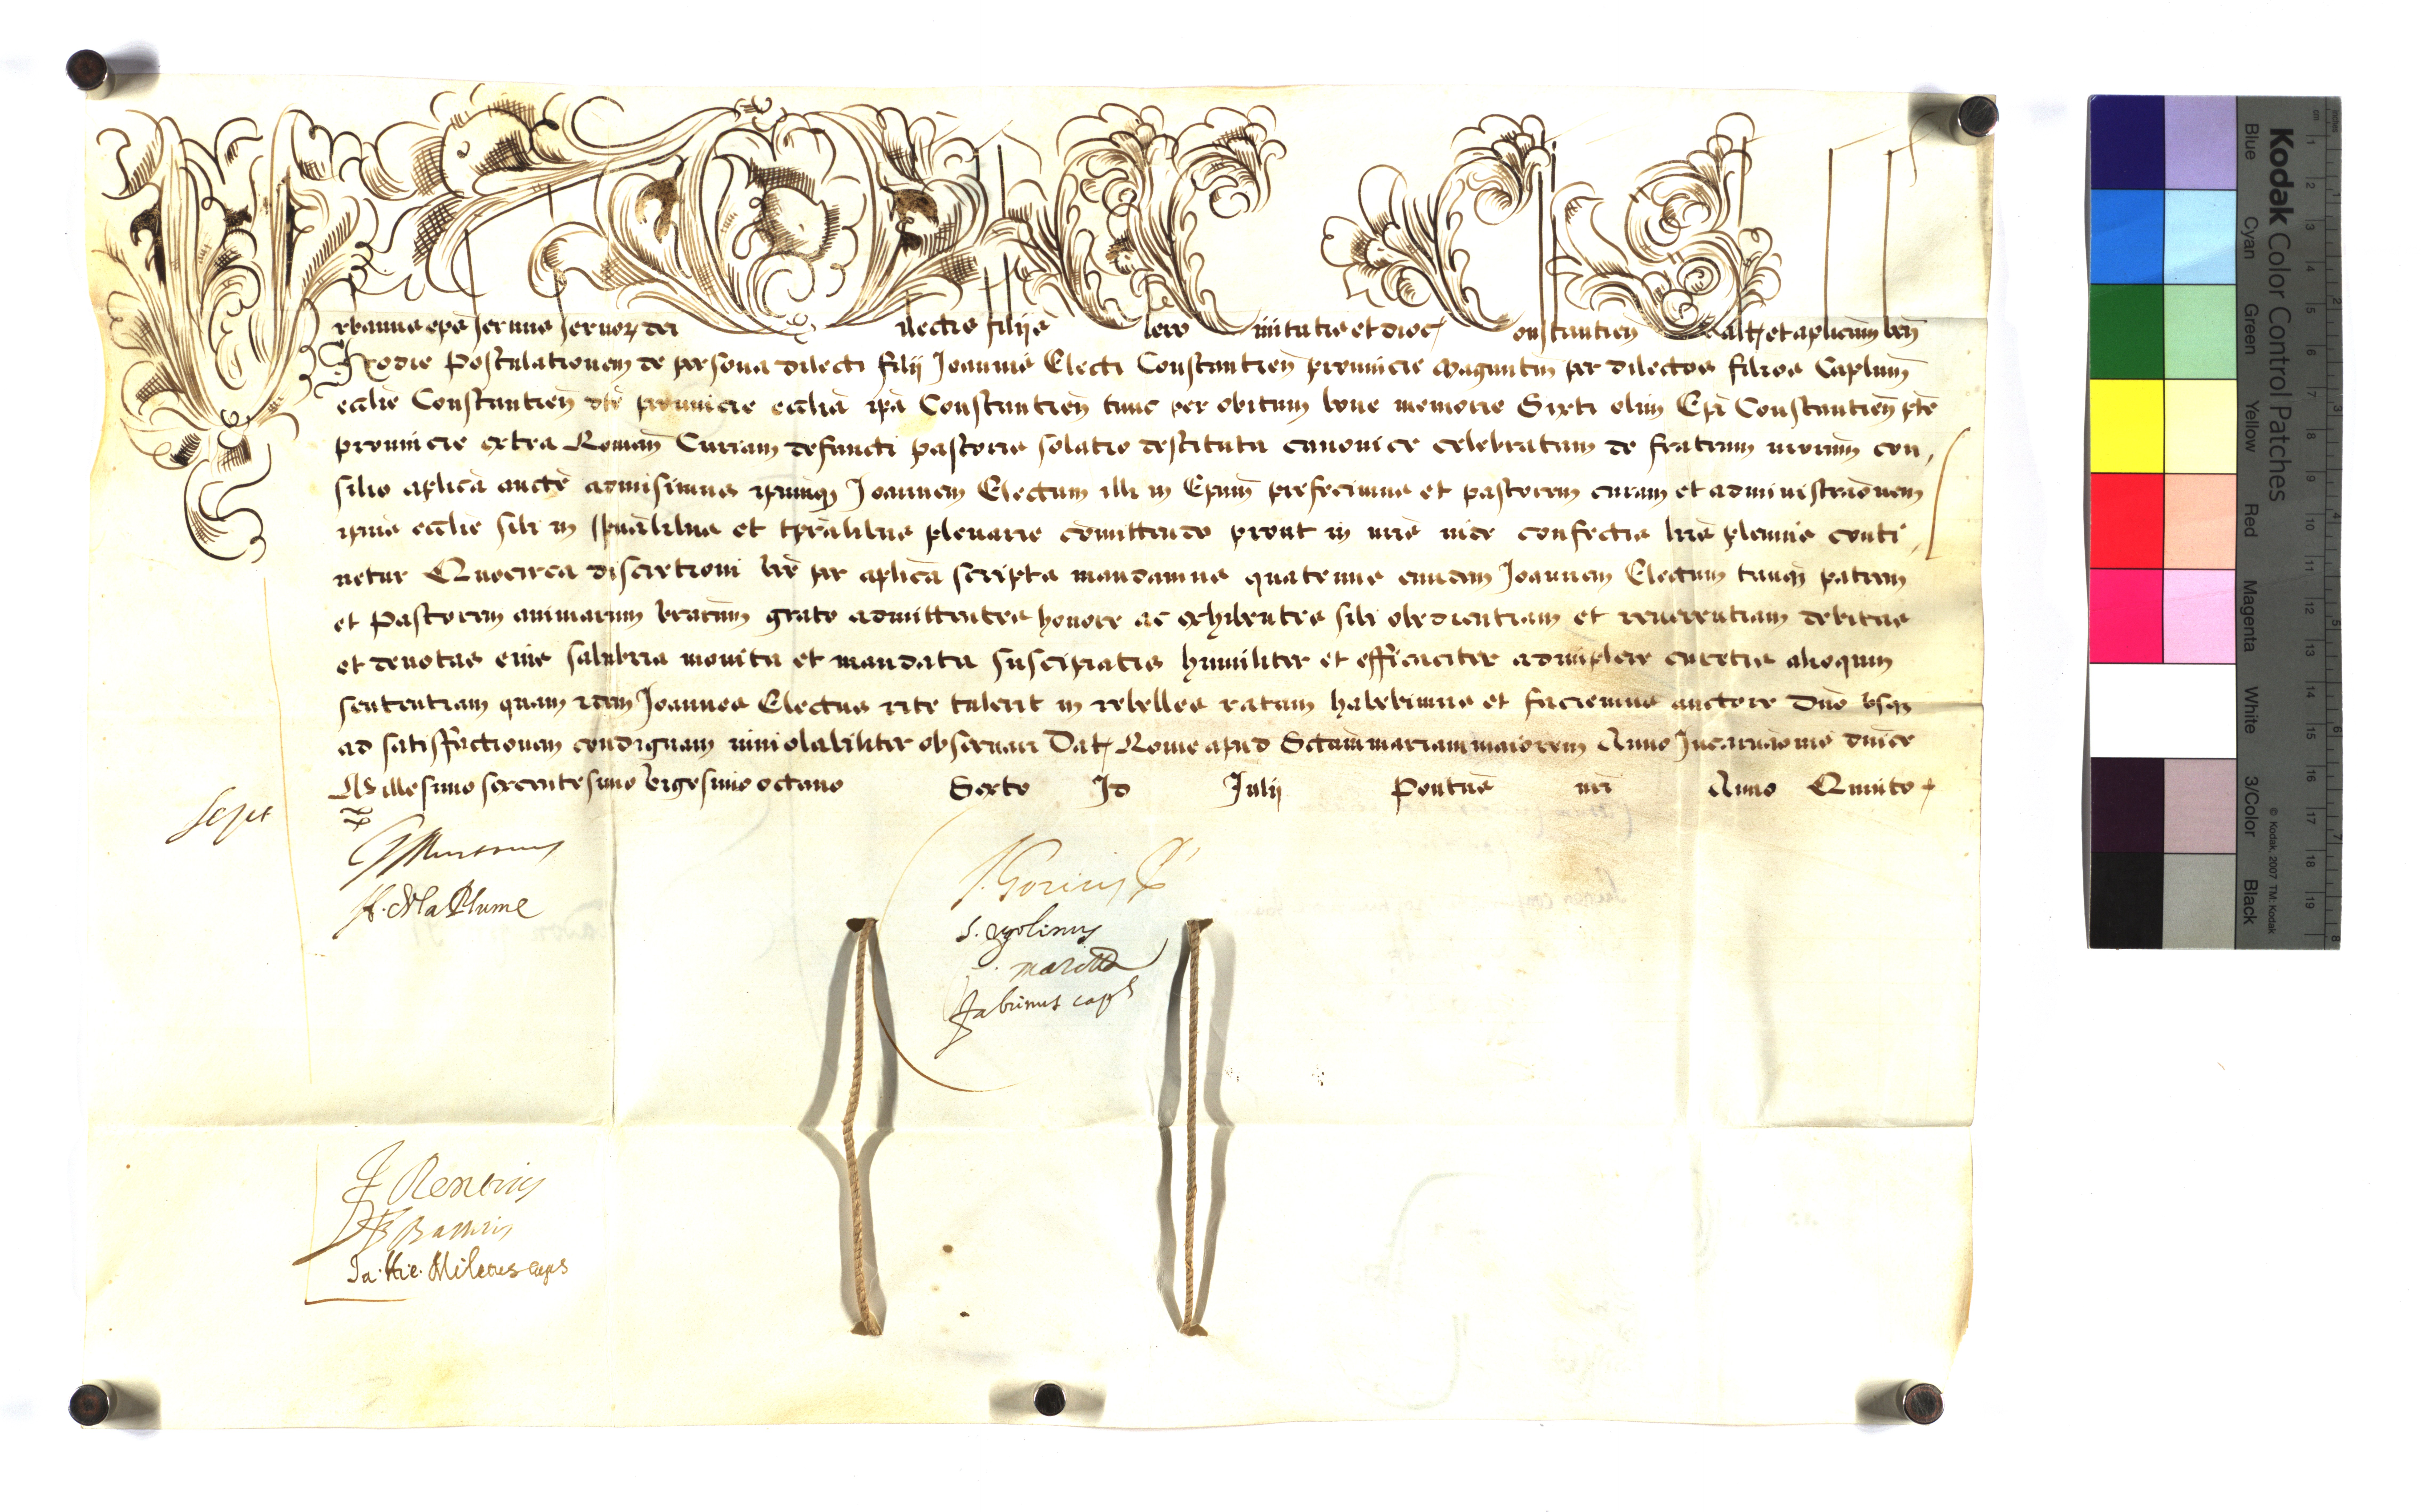 Urbanus eps servus servoꝝ dei Dilectis filijs Clero Civitatis et dioc Constantien̄ Saltē et aplicam ben̄
Hodie Postulationem de persona dilecti filij Joannis Electi Constantien̄ provincie Maguntin̄ per dilectos filios Caplum̄
ecclie Constantien̄ dte provincie ecclia ipa Constantien̄ tunc per obitum bone memorie Sixti olim Epi Constantien̄ pte
provincie extra Roman̄ Curiam defuncti pastoris solatio destituta canonice celebratam de fratrum nrorum con,
silio aplica aucte admisimus ipsumqꝫ Joannem Electum illi in Epum prefecimus et pastorem curam et administraonem
ipius ecclie sibi in spualibus et tpralibus plenarie comittendo prout in nris inde confectis lris plenius conti,
netur Quocirca discretioni vre per aplica scripta mandamus quatenus eundem Joannem Electum tanqꝫ patrem
et Pastorem animarum vrarum grato admittentes honore ac exhibentes sibi obedientiam et reverentiam debitas
et devotas eius salubria monita et mandata suscipiatis humiliter et efficaciter adimplere curetis alioquin
sententiam quam idem Joannes Electus rite tulerit in rebelles ratam habebimus et faciemus auctore Dno vsqꝫ
ad satisfactionem condignam inviolabiliter observari Datꝫ Rome apud Sctam mariam maiorem Anno Incarnaonis dnice
Millesimo sexcentesimo vigesimo octavo Sexto Id Julij Pontus nri Anno Quinto
H. De la Plume
J. Goricius
S. Ugolinus
Fabrinus caps
Ja. Hie. Miletus caps
Kodak Color Control Patches
Blue Cyan Green Yellow Red Magenta White 3/Color Black
© Kodak, 2007 TM: Kodak
cm 1 2 3 4 5 6 7 8 9 10 11 12 13 14 15 16 17 18 19
inches 1 2 3 4 5 6 7 8